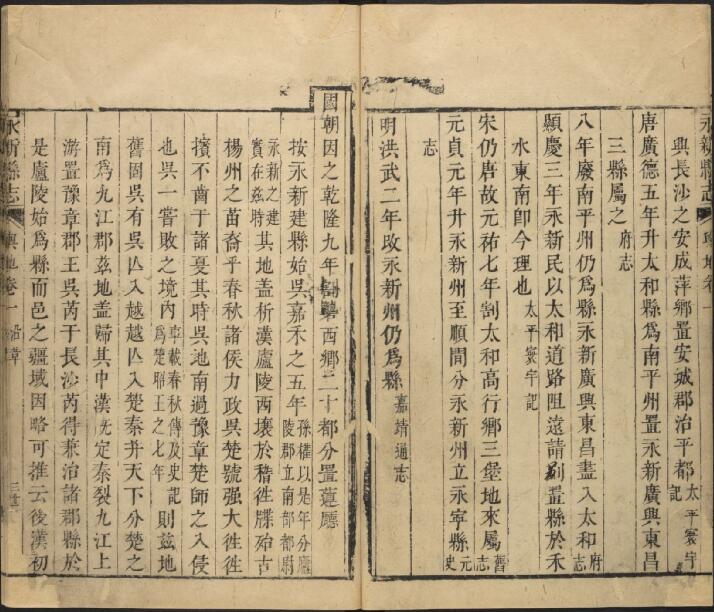 興長沙之安成萍鄉置安城郡治平都太平寰宇記
唐廣德五年升太和縣爲南平州置永新廣興東昌
三縣屬之府志
八年廢南平州仍爲縣永新廣興東昌盡入太和府志
顯慶三年永新民以太和道路阻遠請別置縣於禾
水東南卽今理也太平寰宇記
宋仍唐故元祐七年割太和高行鄉三堡地來屬舊志
元貞元年升永新州至順間分永新州立永寧縣元史
志
明洪武二年改永新州仍爲縣嘉靖通志
國朝因之乾隆九年割西鄉二十都分置蓮廳
按永新建縣始吳嘉禾之五年孫權以是年分廬陵郡立南部都尉
永新之建實在茲時其地盖析漢廬陵西壤於稽徃牒殆古
楊州之苗裔乎春秋諸侯力政吳楚號强大徃徃
擯不齒于諸夏其時吳池南過豫章楚師之入侵
也吳一嘗敗之境內事載春秋傳及史記爲楚昭王之七年則茲地
舊固吳有吳亾入越越亾入楚秦幷天下分楚之
南爲九江郡茲地盖歸其中漢旣定秦裂九江上
游置豫章郡王吳芮于長沙芮得兼治諸郡縣於
是廬陵始爲縣而邑之疆域因略可推云後漢初
永新縣志 輿地卷一 沿革